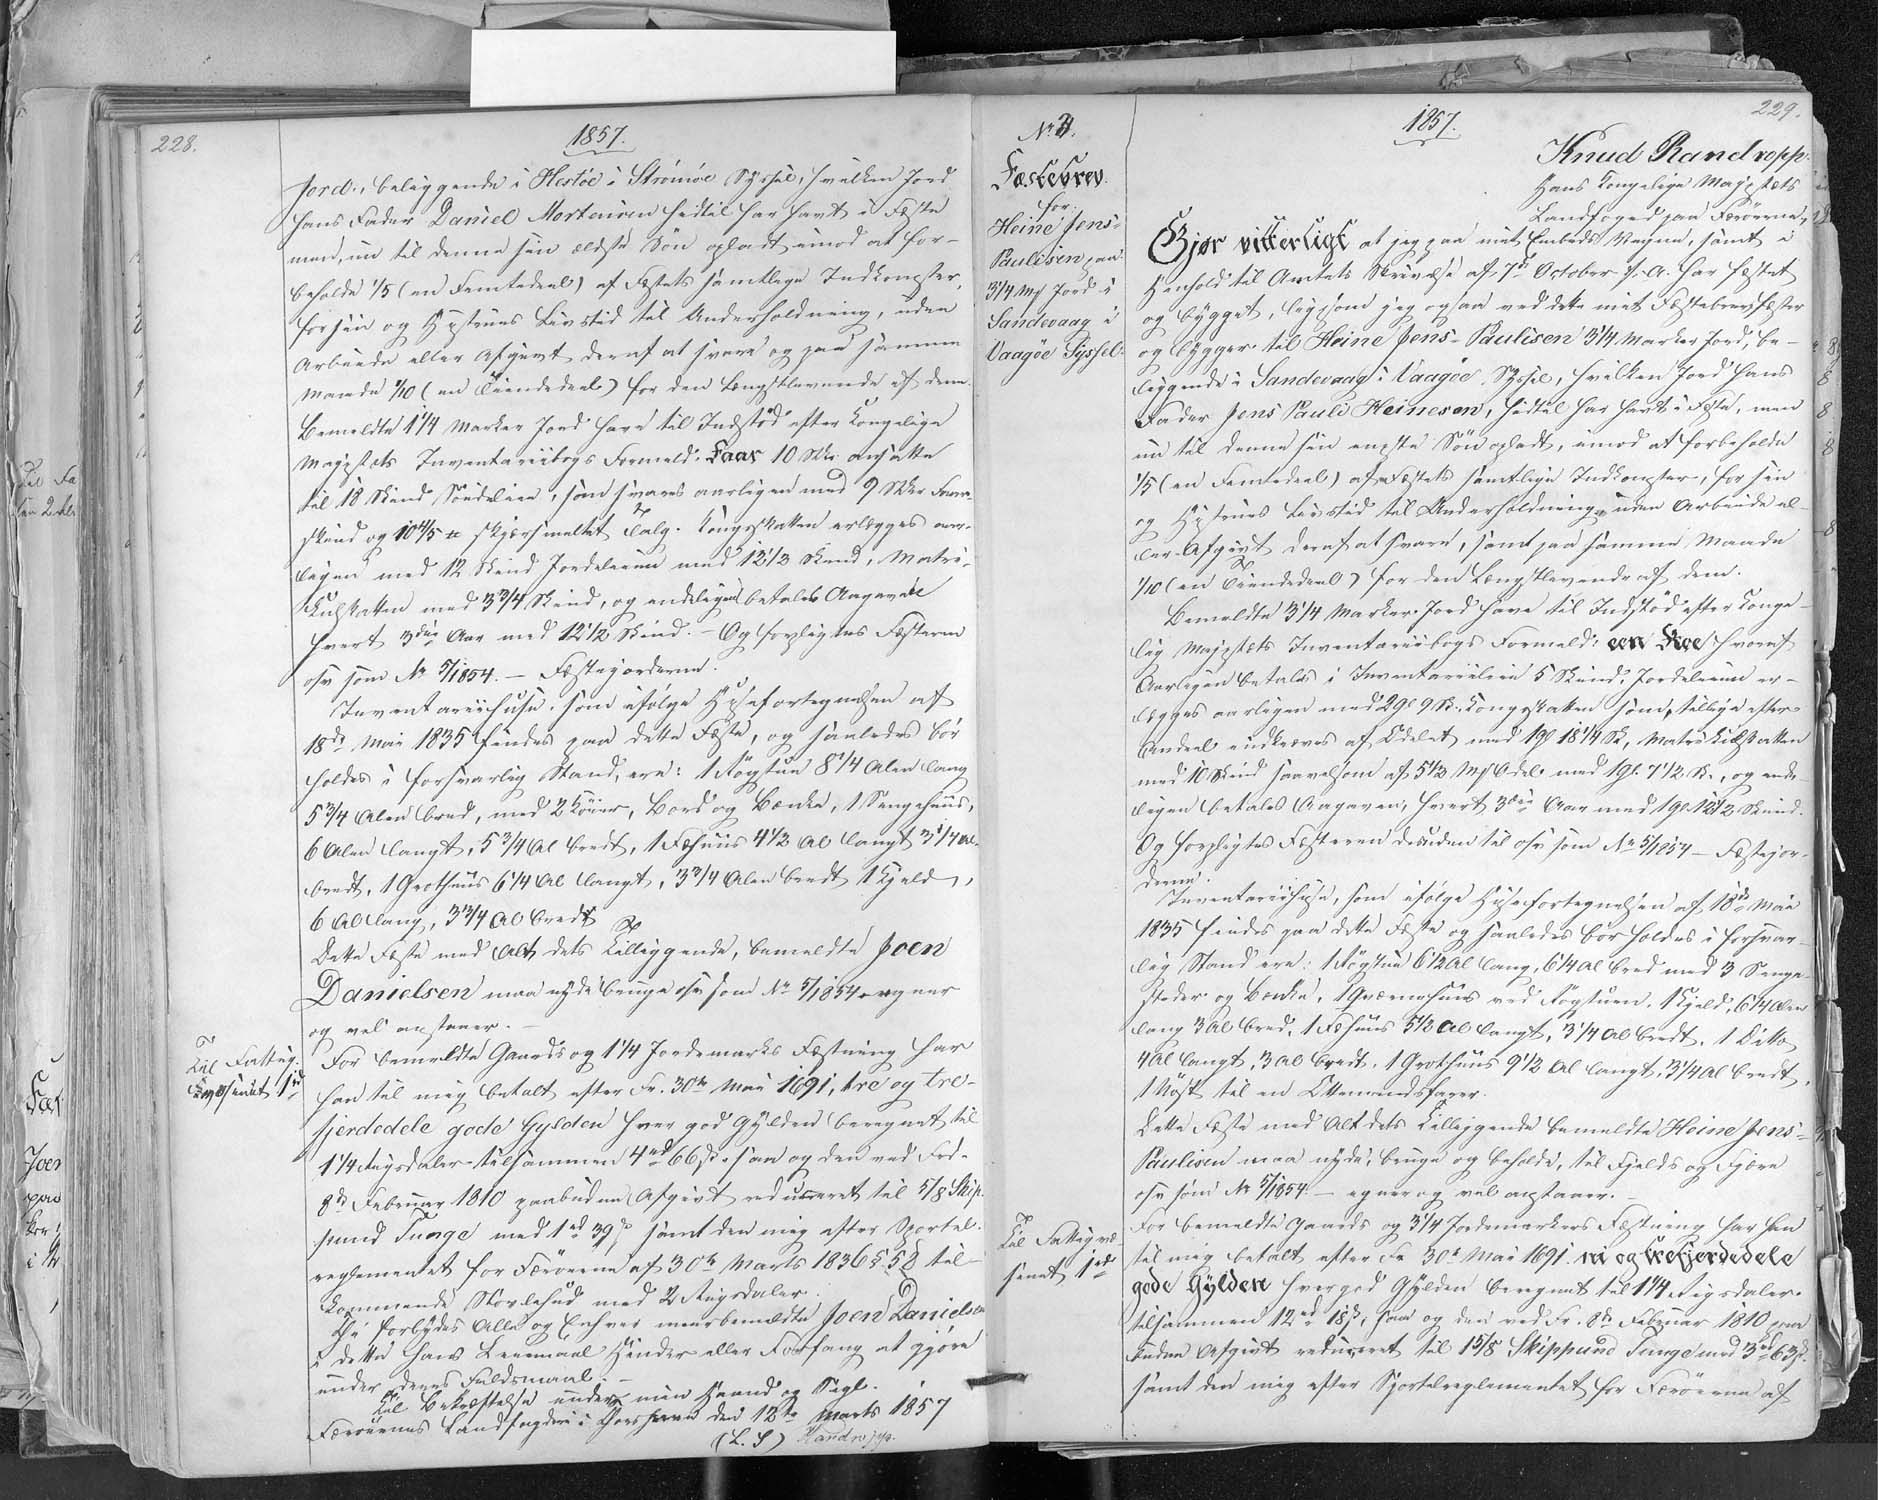 228.
1857.
Jord, beliggende i Hestöe i Strömöe Syssel, hvilken Jord
hans Fader Daniel Mortensen hidtil har havt i Fæste
men, nu til denne sin ældste Sön opladt imod at for-
beholde 1/5 (en Femtedeel) af Fæstets samtlige Indkomster,
for sin og Hustrues Livstid til Underholdning, uden
Arbeide eller Afgivt deraf at svare og paa samme
Maade 1/10 (en Tiendedeel) for den Længstlevende af dem.
Bemeldte 1 1/4 Marker Jord have til Indstöd efter Kongelige
Majestæts Inventariibogs Formeld: Faar 10 Stkr. ansatte
til 18 Skind Söideleie, som svares aarligen med 9 Stkr Faare-
skind og 10 4/5 ℔ skjærsmeltet Talg. Kongsskatten erlægges aar-
ligen med 12 Skind Jordeleien med 12 1/2 Skind, Matri-
kulskatten med 3 3/4 Skind, og endeligen betales Aagaven
hvert 3die Aar med 12 1/2 Skind. - Og forpligtes Fæsteren
osv som No 5/1854. - Fæstejorderne.
Inventariihuse, som ifölge Huusefortegnelsen af
18de Mai 1835 findes paa dette Fæste, og saaledes bör
holdes i forsvarlig Stand, ere: 1 Rögstue 8 1/4 Alen lang
5 3/4 Alen bred, med 2 Köier, Bord og Bænke, 1 Sengehuus,
6 Alen langt, 5 3/4 Al bredt, 1 Fæhuus 4 1/2 Al langt 3 1/4 Al.
bredt, 1 Grothuus 6 1/4 Al langt, 3 3/4 Alen bredt 1 Hjeld,
6 Al lang, 3 3/4 Al bredt
Dette Fæste med Alt dets Tilliggende, bemeldte Joen
Danielsen maa nyde bruge osv som No 5/1854 egner
og vel anstaaer. -
Til Fattig-
væsenet 1rd
For bemeldte Gaards og 1 1/4 Jordemarks Fæstning har
han til mig betalt efter Fr. 30te Mai 1691, tre og tre-
fjerdedele gode Gylden hver god Gylden beregnet til
1 1/4 Rigsdaler tilsammen 4rd 66 s saa og den ved Frd.
8de Februar 1810 paabudne Afgivt reduceret til 5/8 Skip-
pund Tunge med 1rd 39 s samt den mig efter Sportel-
reglementet for Færöerne af 30te Marts 1836 § 58 til-
kommende Stovlehud med 2 Rigsdaler.
Thi forbydes Alle og Enhver meerbemeldte Joen Danielsen
i dette hans Leiemaal Hinder eller Forfang at gjöre
under deres Faldsmaal. -
Til Bekræftelse under min Haand og Segl.
Færöernes Landfogderi i Thorshavn den 12te Marts 1857
(L. S) Randropp.
229.
1857.
No 3.
Fæstebrev
for
Heine Jens-
Paulisen paa
3 1/4 Mk Jord i
Sandevaag i
Vaagöe Syssel.
Knud Randropp.
Hans Kongelige Majestæts
Landfoged paa Færöerne,
Gjør vitterligt at jeg paa mit Embeds Vegne, samt i
Henhold til Amtets Skrivelse af 7de October f. A. har fæstet
og bygget, ligesom jeg ogsaa ved dette mit Fæstebrev fæster
og bygger til Heine Jens-Paulisen 3 1/4 Marker Jord, be-
liggende i Sandevaag i Vaagöe Syssel, hvilken Jord hans
Fader Jens Pauli Heinesen, hidtil har havt i Fæste, men
nu til denne sin eneste Sön opladt, imod at forbeholde
1/5 (en Femtedeel) af Fæstets samtlige Indkomster, for sin
og Hustrues Livstid til Underholdning, uden Arbeide el-
ler Afgivt deraf at svare, samt paa samme Maade
1/10 (en Tiendedeel) for den Længstlevende af dem.
Bemeldte 3 1/4 Marker Jord have til Indstöd efter Konge-
lig Majestæts Inventariibogs Formeld: een Koe hvoraf
Aarligen betales i Inventariileie 5 Skind, Jordeleien er-
lægges aarligen med 2 Gl 9 Sk. Kongsskatten som, tillige efter
Andeel indkræves af Odelet med 1 Gl 18 1/4 Sk, Matrikulskatten
med 10 Skind saavelsom af 5 1/2 Mk Odel med 1 Gl. 7 1/2 Sk., og ende-
ligen betales Aagaven, hvert 3die Aar med 1 Gl 12 1/2 Skind.
Og forpligtes Fæsteren desuden til osv som No 5/1854 - Fæstejor-
derne.
Inventariihuse, som ifölge Huusefortegnelsen af 18de Mai
1835 findes paa dette Fæste og saaledes bör holdes i forsvar-
lig Stand ere: 1 Rögstue 6 1/2 Al lang, 6 1/4 Al bred med 3 Senge-
steder og Bænke, 1 Qværnehuus ved Rögstuen. 1 Hjeld, 6 1/4 Alen
lang 3 Al bred, 1 Fæhuus 5 1/2 Al langt, 3 1/4 Al bredt. 1 Ditto
4 Al langt, 3 Al bredt. 1 Grothuus 9 1/2 Al langt, 3 1/4 Al bredt,
1 Nöst til en Ottemandsfarer.
Dette Fæste med Alt dets Tilliggende bemeldte Heine Jens-
Paulisen maa nyde, bruge og beholde, til Fjelds og Fjære
osv som No 5/1854 - egner og vel anstaaer. -
Til Fattigvæ-
senet 1rd
For bemeldte Gaards og 3 1/4 Jordemarkers Fæstning har han
til mig betalt efter Fr 30te Mai 1691. ni og trefjerdedele
gode Gylden hver god Gylden beregnet til 1 1/4 Rigsdaler
tilsammen 12rd 18 s, saa og den ved Fr. 8de Februar 1810 paa-
budne Afgivt reduceret til 1 5/8 Skippund Tunge med 3rd 63 s.
samt den mig efter Sportelreglementet for Færöerne af